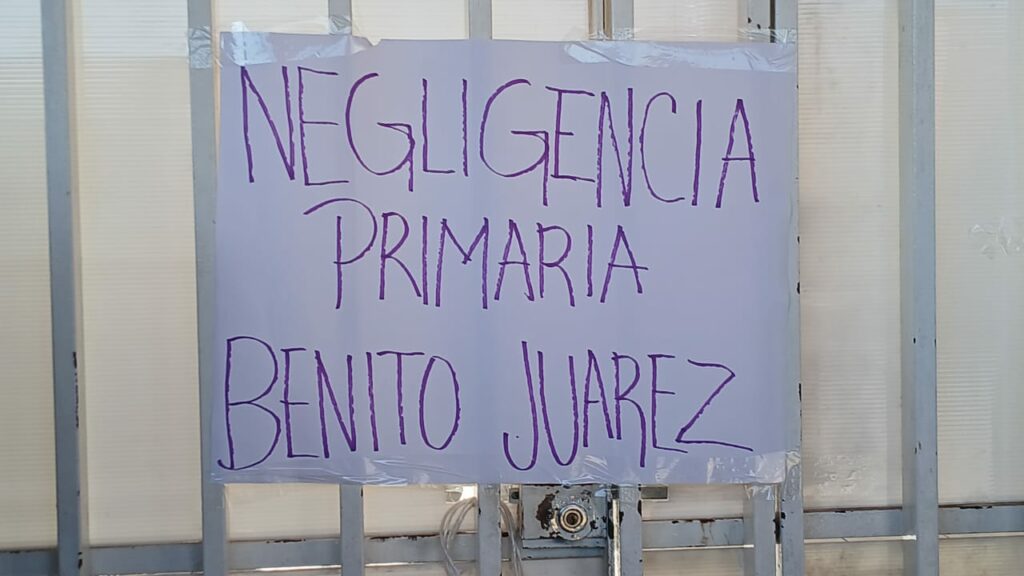 NEGLIGENCIA
PRIMARIA
BENITO JUAREZ